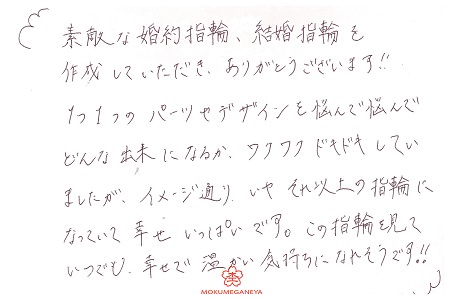 素敵な婚約指輪、結婚指輪を
作成していただき、ありがとうございます!!
1つ1つのパーツやデザインを悩んで悩んで
どんな出来になるか、ワクワクドキドキしてい
ましたが、イメージ通り、いやそれ以上の指輪に
なっていて幸せいっぱいです。この指輪を見て
いつでも、幸せで温かい気持ちになれそうです!!
MOKUMEGANEYA